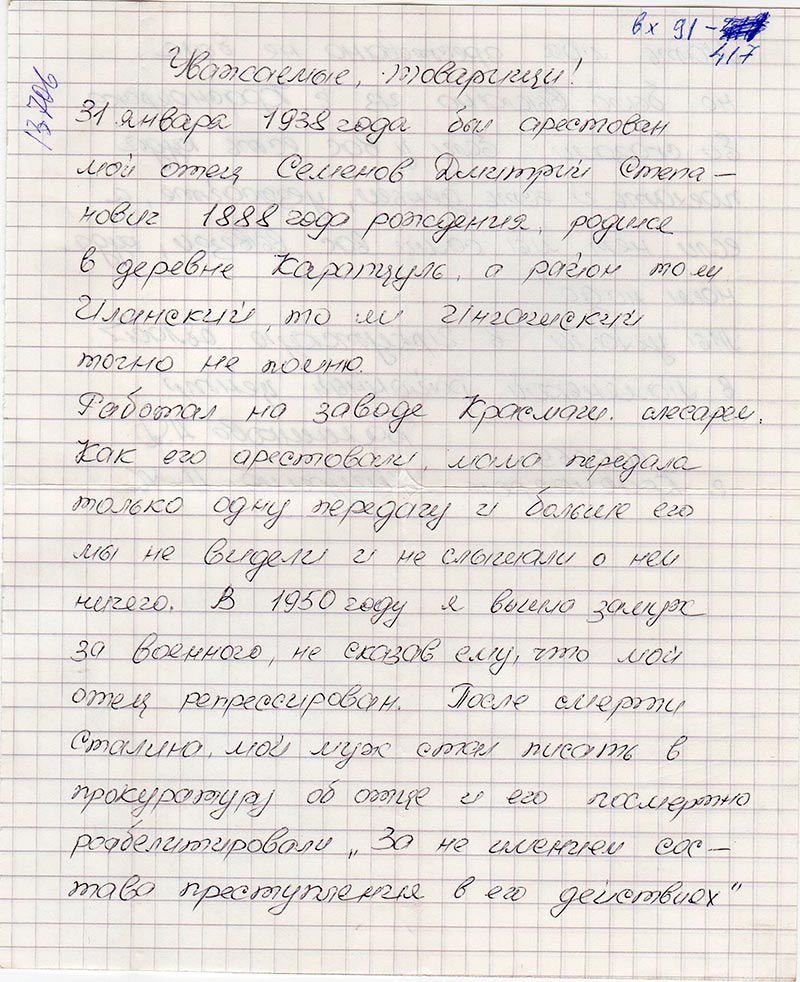 вх 91 -
417
13706
Уважаемые, товарищи!
31 января 1938 года был арестован
мой отец Семенов Дмитрий Степа-
нович 1888 года рождения, родился
в деревне Карапцуль, а район то ли
Иланский, то ли Ингашский
точно не помню.
Работал на заводе Красмаш. слесарем.
Как его арестовали, мама передала
только одну передачу и больше его
мы не видели и не слышали о нем
ничего. В 1950 году я вышла замуж
за военного, не сказав ему, что мой
отец репрессирован. После смерти
Сталина, мой муж стал писать в
прокуратуру об отце и его посмертно
реабелитировали „За не имением сос-
тава преступления в его действиях"